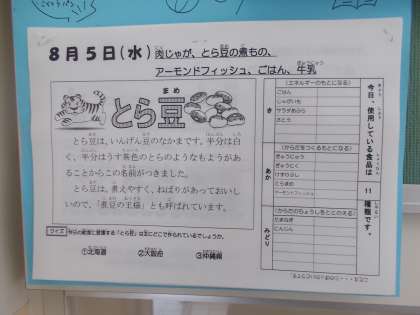 8月5日(水) 肉じゃが、とら豆の煮もの、
アーモンドフィッシュ、ごはん、牛乳
とら豆
とら豆は、いんげん豆のなかまです。半分は白
く、半分はうす茶色のとらのようなもようがあ
ることからこの名前がつきました。
とら豆は、煮えやすく、ねばりがあっておいし
いので、「煮豆の王様」とも呼ばれています。
クイズ 今日の給食に登場する「とら豆」は主にどこで作られているでしょうか。
①北海道 ②大阪府 ③沖縄県
き
(エネルギーのもとになる)
ごはん
じゃがいも
サラダあぶら
さとう
あか
(からだをつくるもとになる)
ぎゅうにゅう
ぎゅうにく
とらまめ
アーモンドフィッシュ
みどり
(からだのちょうしをととのえる)
たまねぎ
にんじん
今日、使用している食品は
11
種類です。